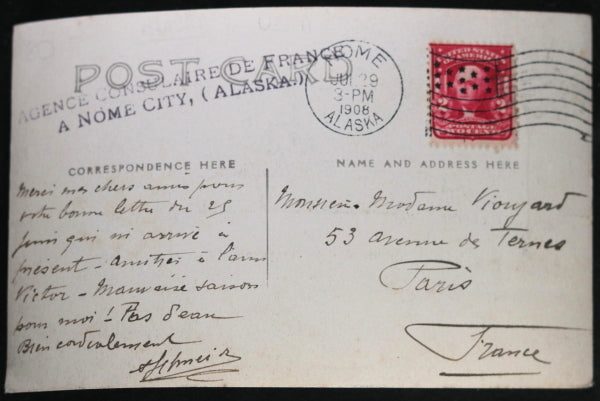 POST CARD
AGENCE CONSULAIRE DE FRANCE
A NOME CITY, (ALASKA.)
NOME
3-PM
1908
ALASKA
UNITED STATES
OF AMERICA
POSTAGE
TWO CENTS
CORRESPONDENCE HERE
NAME AND ADDRESS HERE
Merci mes chers amis pour
votre bonne lettre du 25
juin qui m'arrive à
présent - amitiés à l'ami
Victor - Mauvaise saison
pour moi! Pas d'eau
Bien cordialement
Monsieur Madame
53 avenue des Ternes
Paris
France